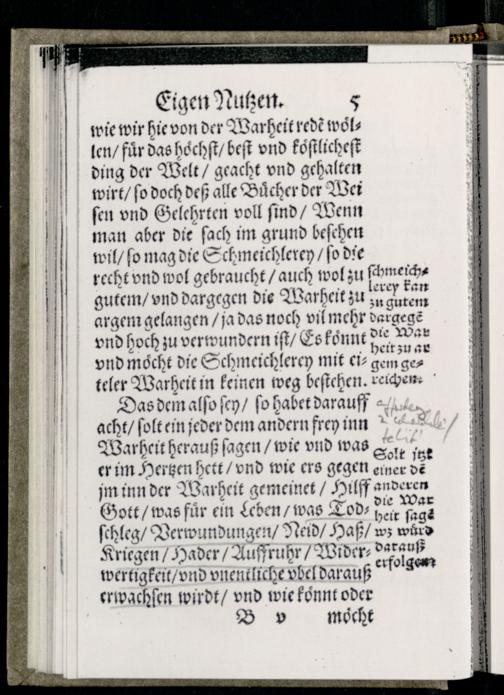 Eigen Nutzen. 5
wie wir hie von der Warheit redẽ wöl-
len/ für das höchst/ best vnd köstlichest
ding der Welt/ geacht vnd gehalten
wirt/ so doch deß alle Bücher der Wei
sen vnd Gelehrten voll sind/ Wenn
man aber die sach im grund besehen
wil/ so mag die Schmeichlerey/ so die
recht vnd wol gebraucht/ auch wol zu
gutem/ vnd dargegen die Warheit zu
argem gelangen/ ja das noch vil mehr
vnd hoch zu verwundern ist/ Es könnt
vnd möcht die Schmeichlerey mit ei-
teler Warheit in keinen weg bestehen.
schmeich-
lerey kan
zu gutem
dargegẽ
die War
heit zu ar
gem ge-
reichen.
Das dem also sey/ so habet darauff
acht/ solt ein jeder dem andern frey inn
Warheit herauß sagen/ wie vnd was
er im Hertzen hett/ vnd wie ers gegen
jm inn der Warheit gemeinet/ Hilff
Gott/ was für ein Leben/ was Tod-
schleg/ Verwundungen/ Neid/ Haß/
Kriegen/ Hader/ Auffruhr/ Wider-
wertigkeit/ vnd vnentliche vbel darauß
erwachsen wirdt/ vnd wie könnt oder
Solt jtzt
einer dẽ
anderen
die War
heit sagẽ
wz würd
darauß
erfolgen?
B v möcht